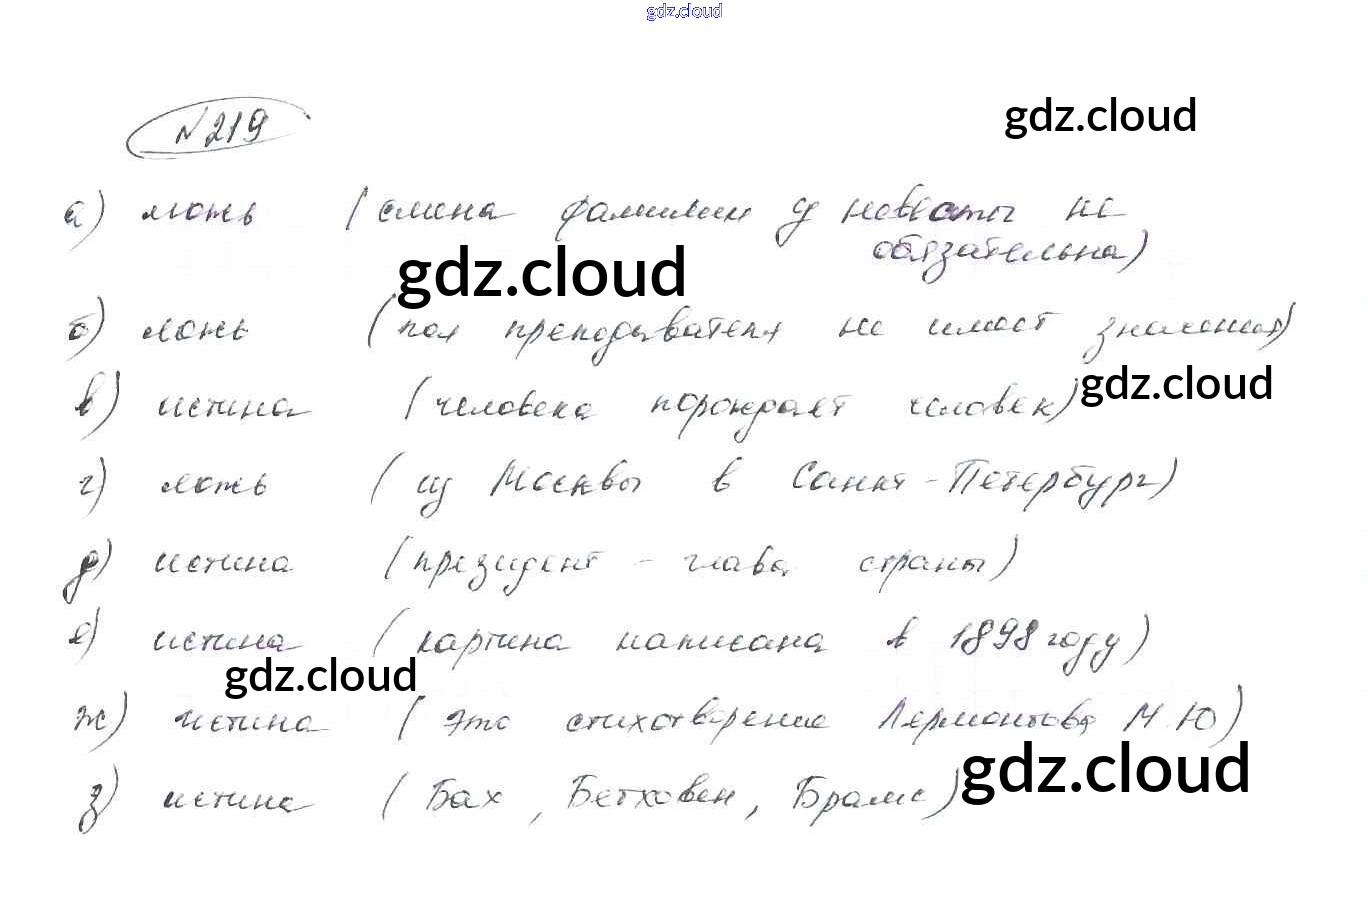 gdz.cloud
№ 219
gdz.cloud
а) ложь (смена фамилии у невесты не
обязательна)
gdz.cloud
б) ложь (пол преподавателя не имеет значения)
gdz.cloud
в) истина (человека порождает человек)
г) ложь (из Москвы в Санкт-Петербург)
д) истина (президент - глава страны)
е) истина (картина написана в 1898 году)
gdz.cloud
ж) истина (это стихотворение Лермонтова М.Ю)
gdz.cloud
з) истина (Бах, Бетховен, Брамс)